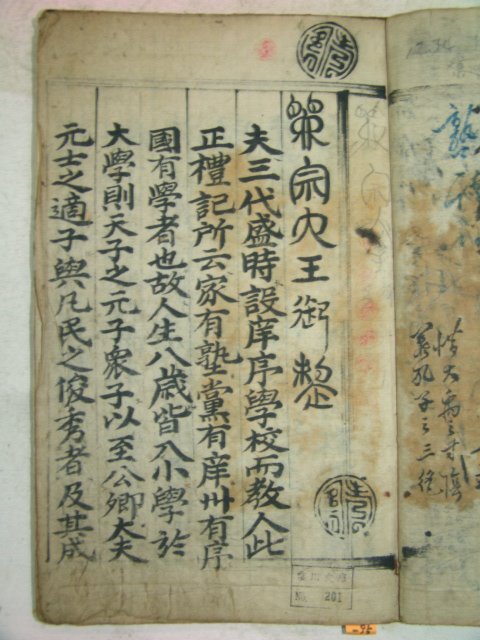 惜大禹之寸陰
孔子之三絶
宗大王御製
夫三代盛時設庠序學校而教人此
正禮記所云家有塾黨有庠州有序
國有學者也故人生八歲皆入小學於
大學則天子之元子衆子以至公卿大夫
元士之適子與凡民之俊秀者及其成
201